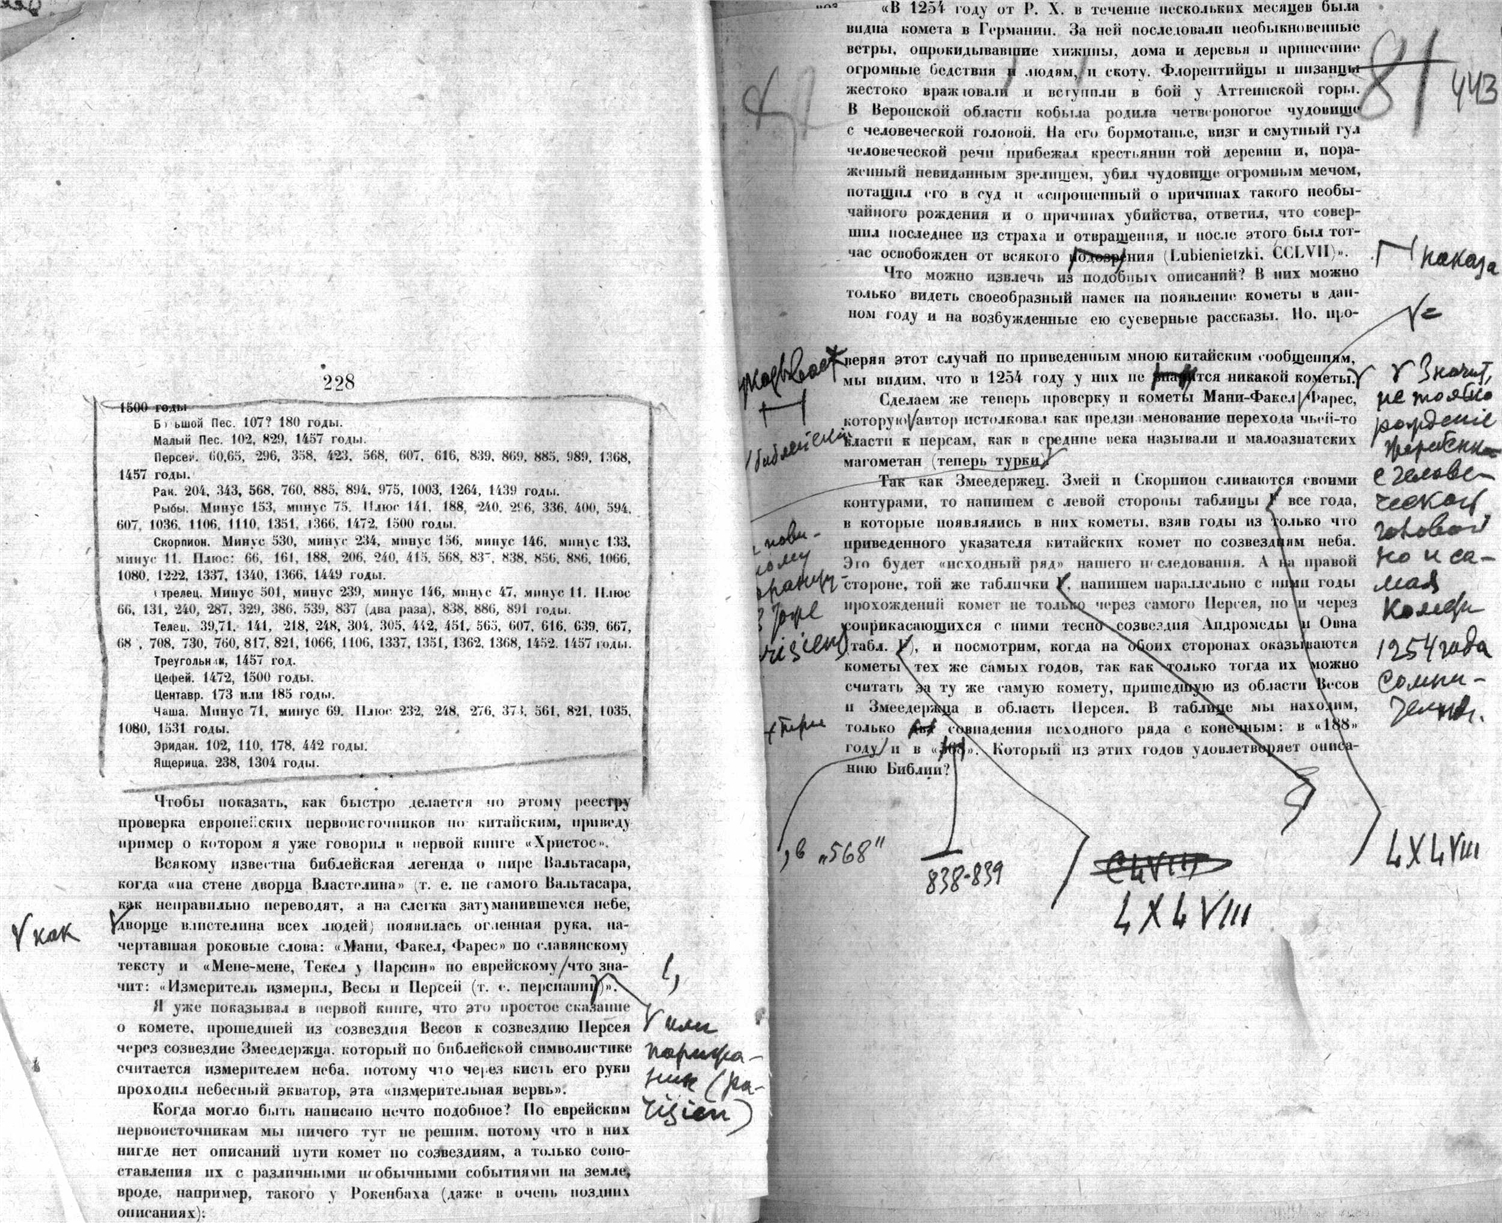 228
1500 годы
Большой Пес. 107? 180 годы.
Малый Пес. 102, 829, 1457 годы.
Персей. 60,65, 296, 358, 423, 568, 607, 616, 839, 869, 885, 989, 1368,
1457 годы.
Рак. 204, 343, 568, 760, 885, 894, 975, 1003, 1264, 1439 годы.
Рыбы. Минус 153, минус 75. Плюс 141, 188, 240, 296, 336, 400, 594,
607, 1036, 1106, 1110, 1351, 1366, 1472, 1500 годы.
Скорпион. Минус 530, минус 234, минус 156, минус 146, минус 133,
минус 11. Плюс: 66, 161, 188, 206, 240, 415, 568, 837, 838, 856, 886, 1066,
1080, 1222, 1337, 1340, 1366, 1449 годы.
Стрелец. Минус 501, минус 239, минус 146, минус 47, минус 11. Плюс
66, 131, 240, 287, 329, 386, 539, 837 (два раза), 838, 886, 891 годы.
Телец. 39,71, 141, 218, 248, 304, 305, 442, 451, 565, 607, 616, 639, 667,
68 , 708, 730, 760, 817, 821, 1066, 1106, 1337, 1351, 1362, 1368, 1452, 1457 годы.
Треугольник, 1457 год.
Цефей. 1472, 1500 годы.
Центавр. 173 или 185 годы.
Чаша. Минус 71, минус 69. Плюс 232, 248, 276, 373, 561, 821, 1035,
1080, 1531 годы.
Эридан. 102, 110, 178, 442 годы.
Ящерица. 238, 1304 годы.
Чтобы показать, как быстро делается по этому реестру
проверка европейских первоисточников по китайским, приведу
пример о котором я уже говорил в первой книге «Христос».
Всякому известна библейская легенда о пире Вальтасара,
когда «на стене дворца Властелина» (т. е. не самого Вальтасара,
как неправильно переводят, а на слегка затуманившемся небе,
дворце властелина всех людей) появилась огненная рука, на-
чертавшая роковые слова: «Мани, Факел, Фарес» по славянскому
тексту и «Мене-мене, Текел у Парсин» по еврейскому что зна-
чит: «Измеритель измерил, Весы и Персей (т. е. персианин)».
Я уже показывал в первой книге, что это простое сказание
о комете, прошедшей из созвездия Весов к созвездию Персея
через созвездие Змеедержца, который по библейской символистике
считается измерителем неба, потому что через кисть его руки
проходил небесный экватор, эта «измерительная вервь».
Когда могло быть написано нечто подобное? По еврейским
первоисточникам мы ничего тут не решим, потому что в них
нигде нет описаний пути комет по созвездиям, а только сопо-
ставления их с различными необычными событиями на земле,
вроде, например, такого у Рокенбаха (даже в очень поздних
описаниях):
как
или
парижа-
нин (pa-
risien)
«В 1254 году от Р. Х. в течение нескольких месяцев была
видна комета в Германии. За ней последовали необыкновенные
ветры, опрокидывавшие хижины, дома и деревья и принесшие
огромные бедствия и людям, и скоту. Флорентийцы и пизанцы
жестоко враждовали и вступили в бой у Аттеинской горы.
В Веронской области кобыла родила четвероногое чудовище
с человеческой головой. На его бормотанье, визг и смутный гул
человеческой речи прибежал крестьянин той деревни и, пора-
женный невиданным зрелищем, убил чудовище огромным мечом,
потащил его в суд и «спрошенный о причинах такого необы-
чайного рождения и о причинах убийства, ответил, что совер-
шил последнее из страха и отвращения, и после этого был тот-
час освобожден от всякого подозрения (Lubienietzki, CCLVII)».
Что можно извлечь из подобных описаний? В них можно
только видеть своеобразный намек на появление кометы в дан-
ном году и на возбужденные ею суеверные рассказы. Но, про-
веряя этот случай по приведенным мною китайским сообщениям,
мы видим, что в 1254 году у них не значится никакой кометы.
Сделаем же теперь проверку и кометы Мани-Факел Фарес,
которую автор истолковал как предзнаменование перехода чьей-то
власти к персам, как в средние века называли и малоазиатских
магометан (теперь турки)
Так как Змеедержец, Змей и Скорпион сливаются своими
контурами, то напишем с левой стороны таблицы V все года,
в которые появлялись в них кометы, взяв годы из только что
приведенного указателя китайских комет по созвездиям неба.
Это будет «исходный ряд» нашего исследования. А на правой
стороне, той же таблички V, напишем параллельно с ними годы
прохождений комет не только через самого Персея, но и через
соприкасающихся с ними тесно созвездия Андромеды и Овна
(табл. V), и посмотрим, когда на обоих сторонах оказываются
кометы тех же самых годов, так как только тогда их можно
считать за ту же самую комету, пришедшую из области Весов
и Змеедержца в область Персея. В таблице мы находим,
только два совпадения исходного ряда с конечным: в «188»
году и в «568». Который из этих годов удовлетворяет описа-
нию Библии?
81
443
наказа
Значит,
не только
рождение
жеребенка
с челове-
ческой
головой
но и са-
мая
комета
1254 года
сомни-
тельна.
три
, в „568"
838-839
LXLVIII
LXLVIII